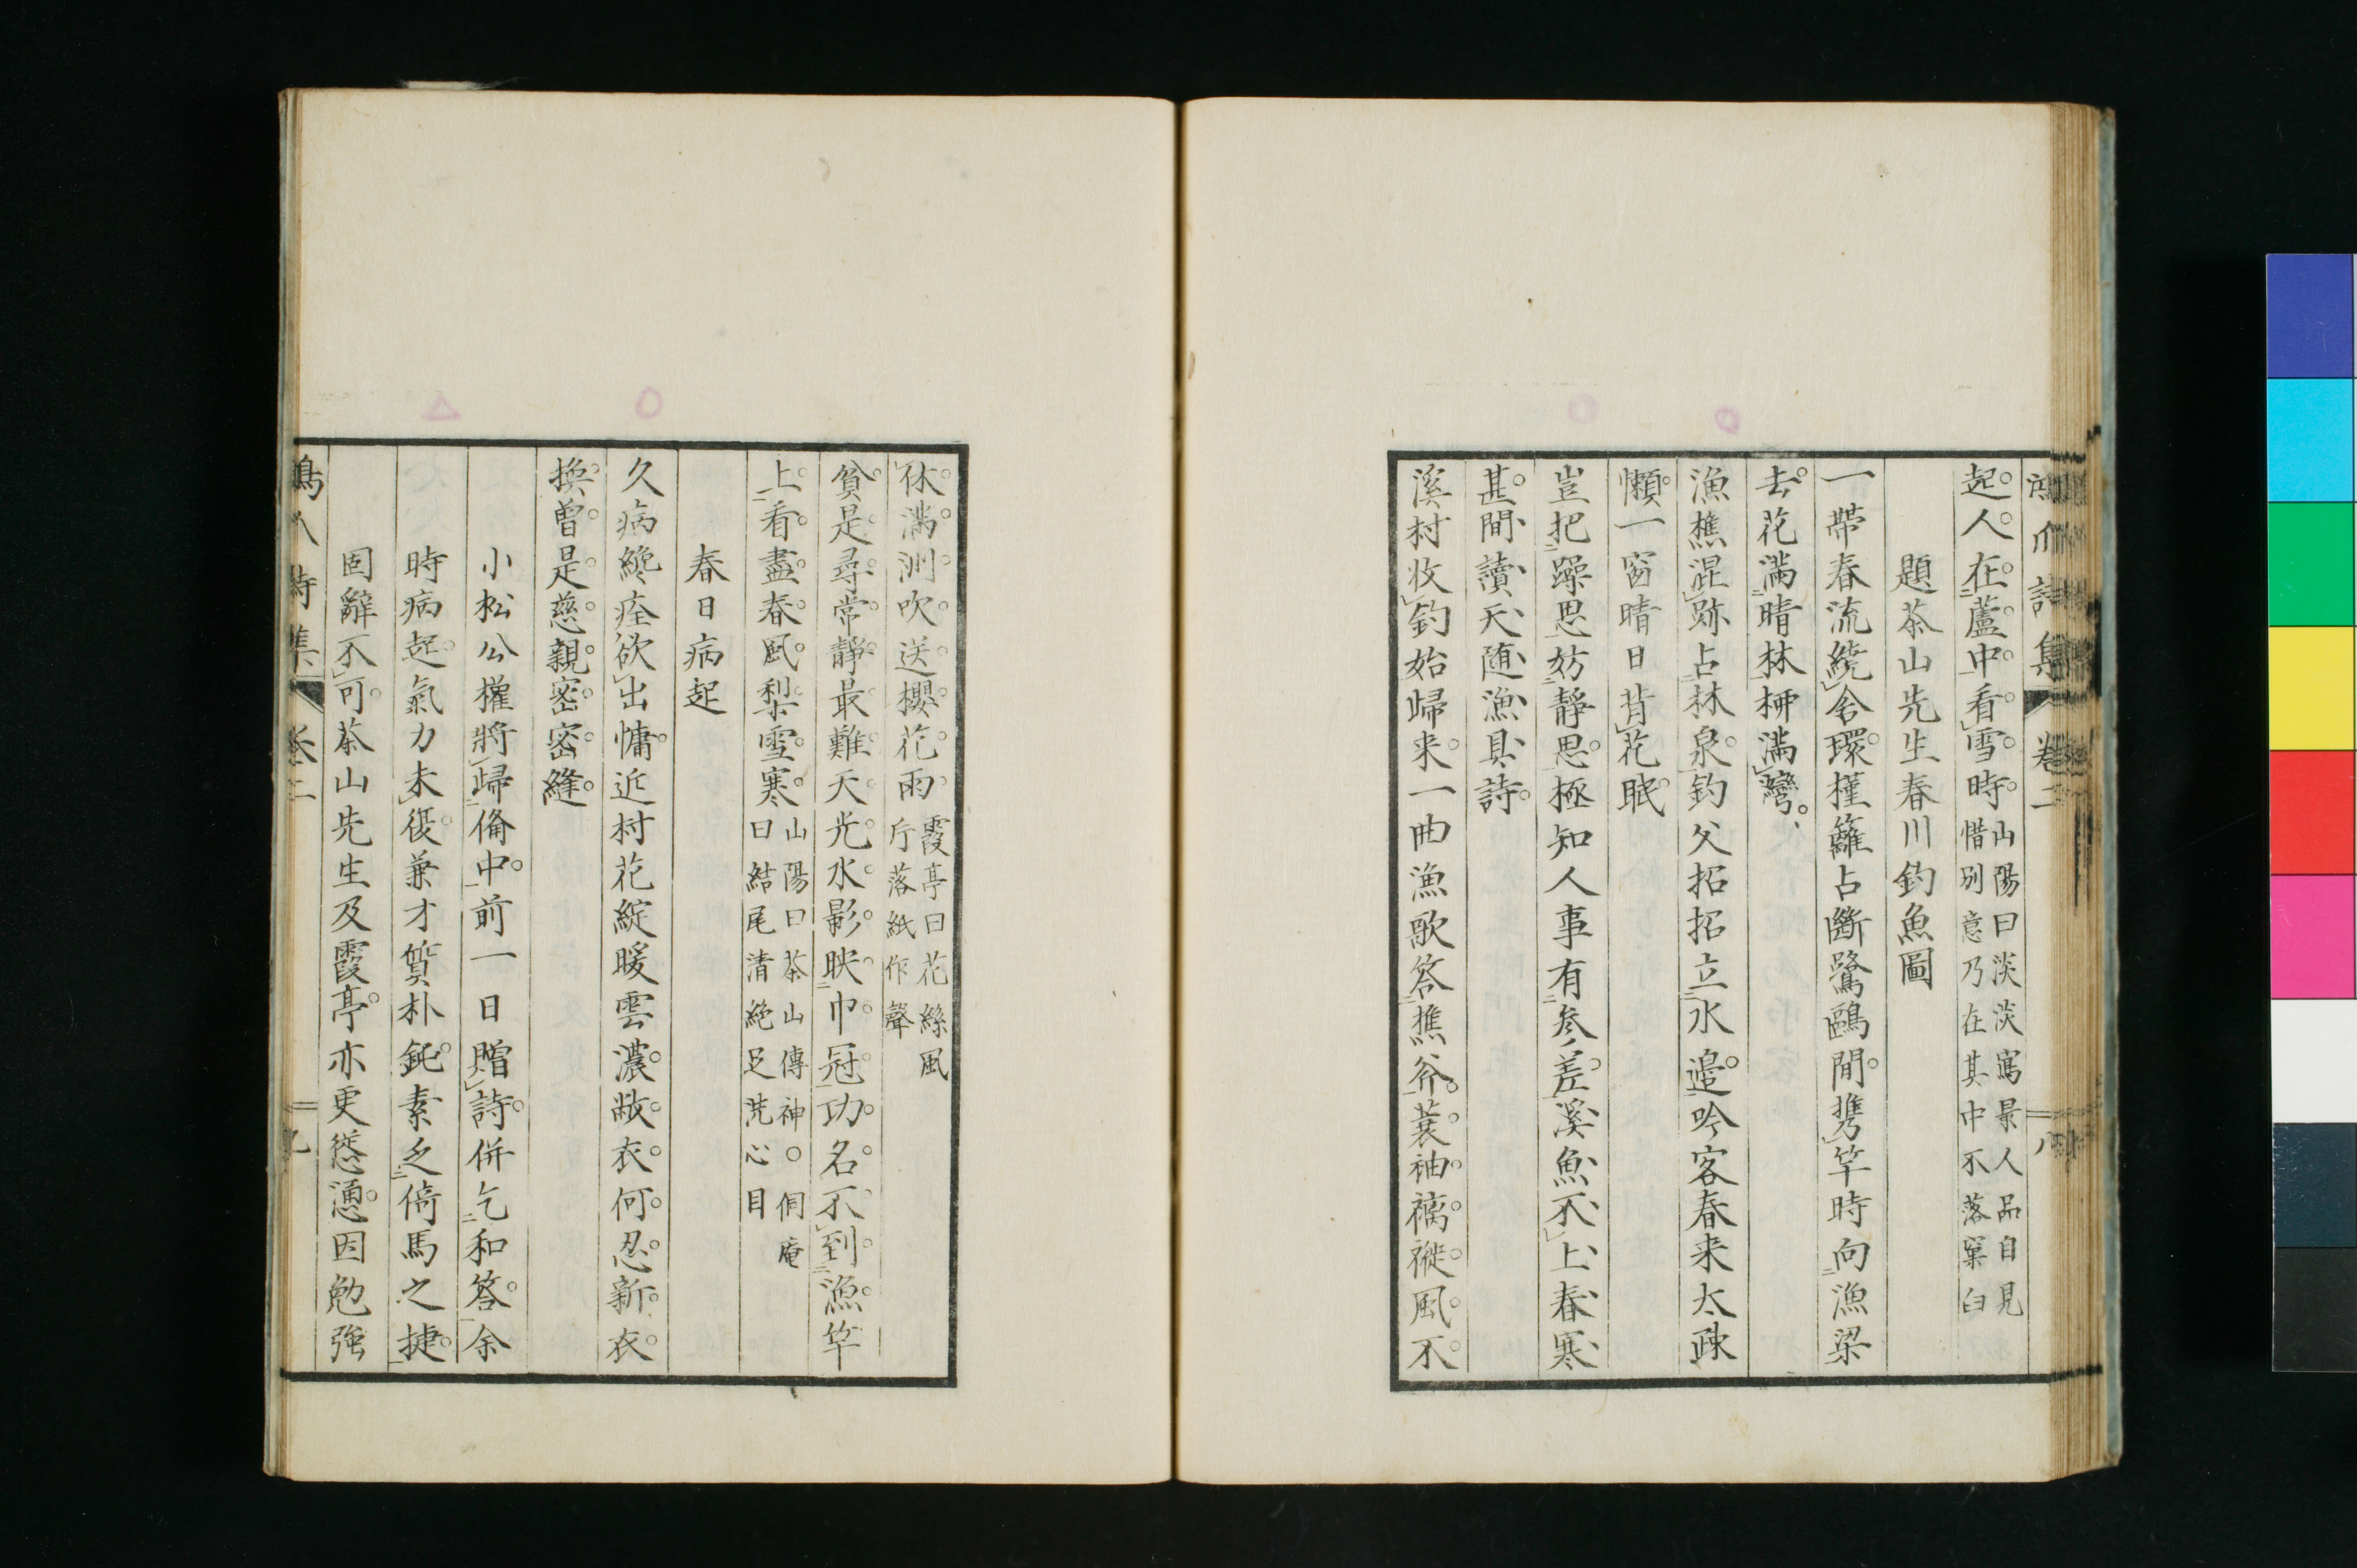 起人在蘆中看雪時山陽曰淡淡寫景人品自見
惜別意乃在其中不落窠臼
題茶山先生春川釣魚圖
一帶春流繞舍環槿籬占斷鷺鷗間携竿時向漁梁
去花滿晴林柳滿灣
漁樵混跡占林泉釣父招招立水邉吟客春来太疎
懶一窗晴日背花眠
豈把躁思妨靜思極知人事有參差溪魚不上春寒
甚間讀天随漁具詩
溪村收釣始歸来一曲漁歌答樵斧蓑袖褵褷風不
休滿洲吹送櫻花雨霞亭曰花絲風
斤落紙作聲
貧是尋常靜最難天光水影映巾冠功名不到漁竿
上看盡春風梨雪寒山陽曰茶山傳神○侗庵
曰結尾清絶足荒心目
春日病起
久病纔痊欲出慵近村花綻暖雲濃敝衣何忍新衣
換曾是慈親密密縫
小松公擢將歸俻中前一日贈詩併乞和答余
時病起氣力未復兼才質朴鈍素乏倚馬之捷
固辭不可茶山先生及霞亭亦更慫慂因勉強
卷二
九